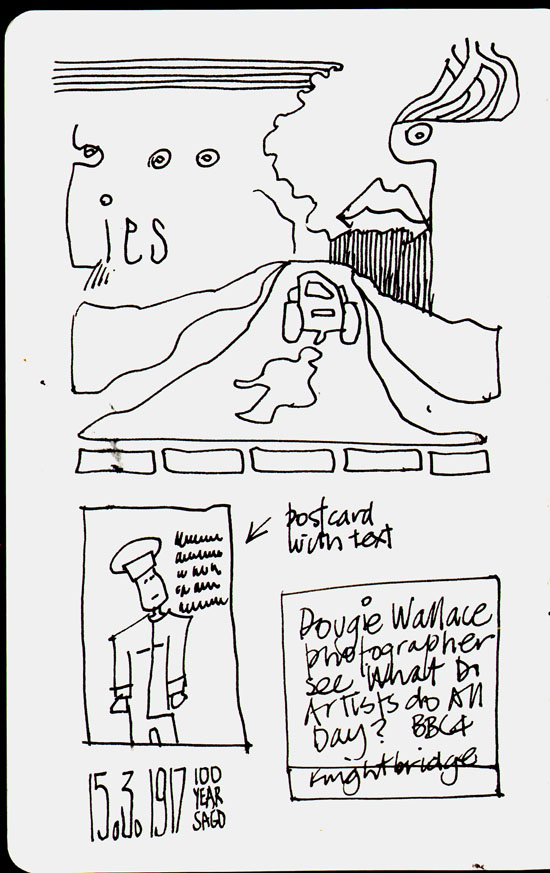 ies
postcard
with text
Dougie Wallace
photographer
see What Do
Artists do All
Day? BBC4
Knightbridge
15.3.1917
100
YEAR
SAGO